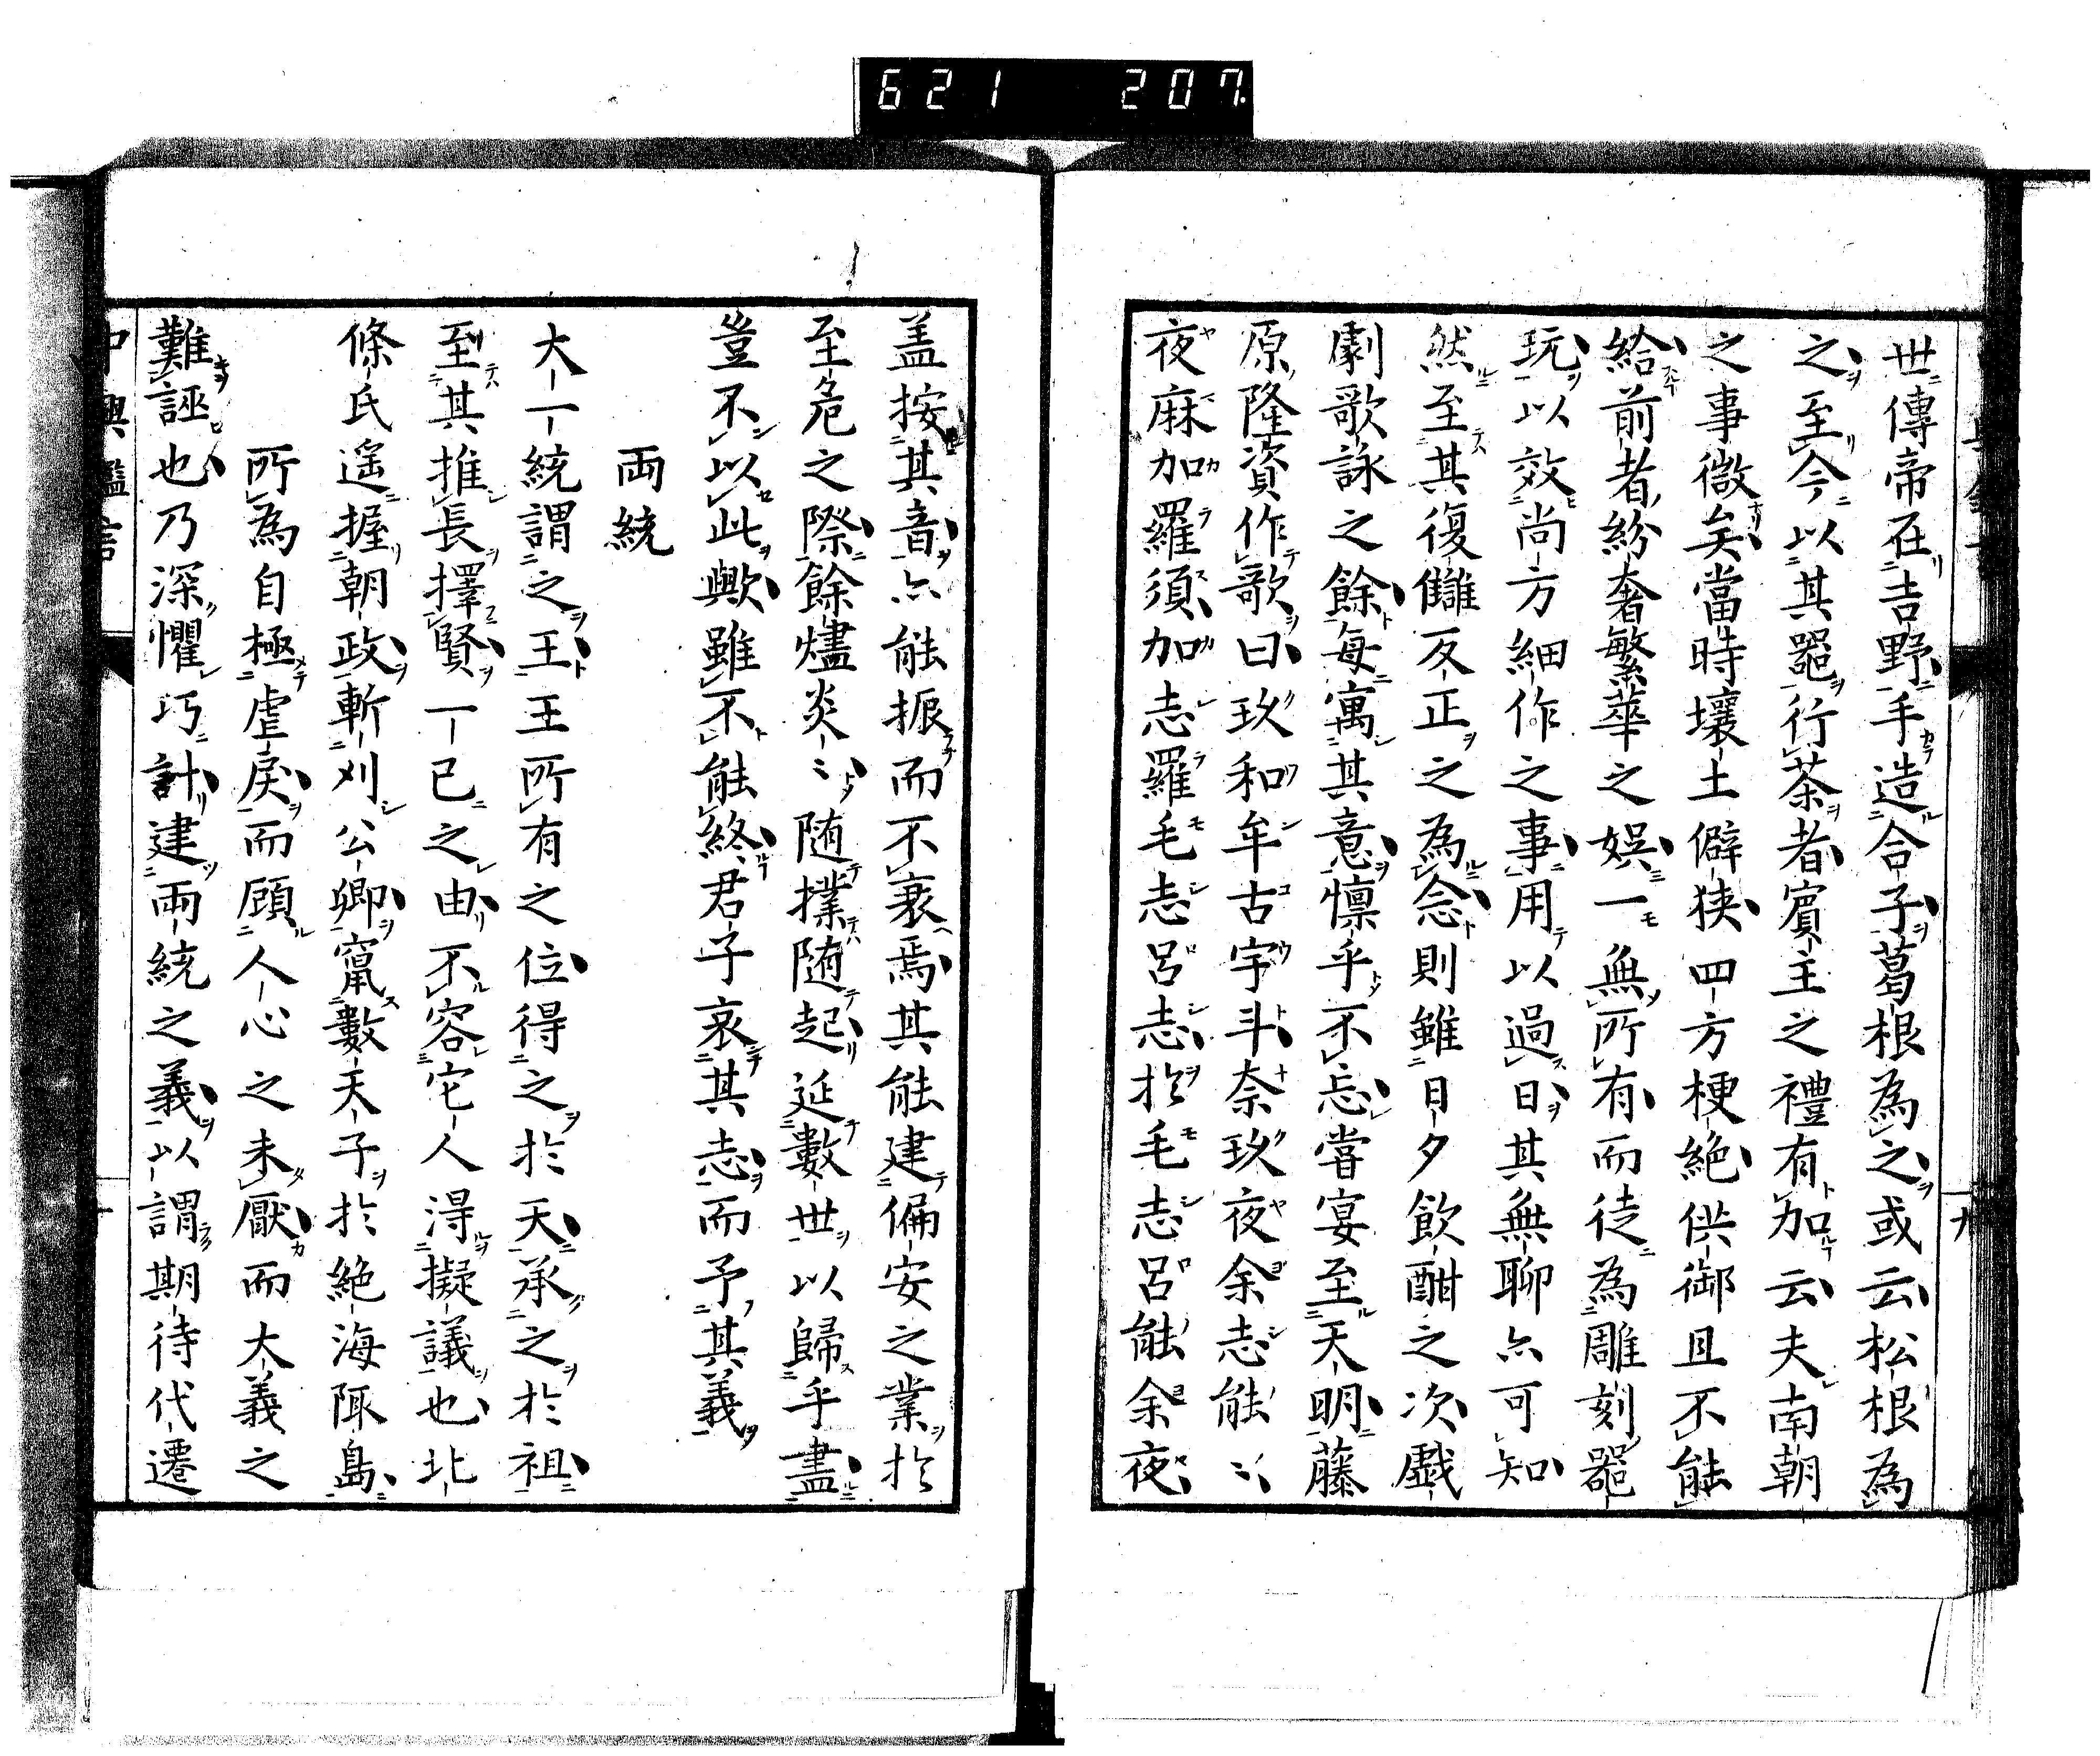 621 207.
世傳帝在吉野手造合子葛根為之或云松根為
之至今以其器行茶者賓主之禮有加云夫南朝
之事微矣當時壤土僻狹四方梗絶供御且不能
給前者紛奢繁華之娯一無所有而徒為雕刻器
玩以效尚方細作之事用以過日其無聊亦可知
然至其復讎反正之為念則雖日夕飲酣之次戲
劇歌詠之餘每寓其意懍乎不忘嘗宴至天明藤
原隆資作歌曰玖和牟古宇斗奈玖夜余志能〻
夜麻加羅須加志羅毛志呂志於毛志呂能余夜
盖按其音亦能振而不衰焉其能建偏安之業於
至危之際餘燼炎〻随撲随起延數世以歸乎盡
豈不以此歟雖不能終君子哀其志而予其義
両統
大一統謂之王王所有之位得之於天承之於祖
至其推長擇賢一己之由不容它人得擬議也北
條氏遥握朝政斬刈公卿竄數天子於絶海陬島
所為自極虐戾而顧人心之未厭而大義之
難誣也乃深懼巧計建兩統之義以謂期待代遷
中興鑑言